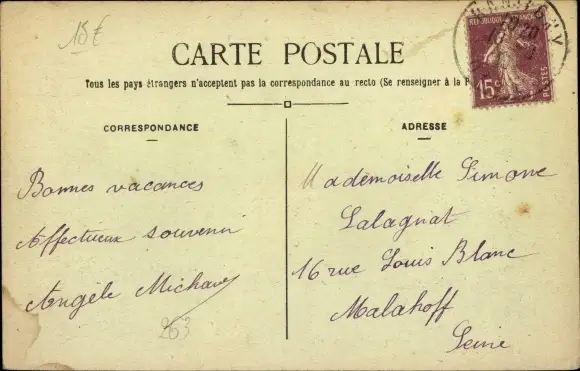 15 €
CARTE POSTALE
Tous les pays étrangers n'acceptent pas la correspondance au recto (Se renseigner à la P
REPUBLIQUE FRANCAISE
15c
POSTES
CORRESPONDANCE
ADRESSE
Bonnes vacances
Affectueux souvenir
Angèle
263
Mademoiselle Simone
Lalagnat
16 rue Louis Blanc
Malakoff
Seine